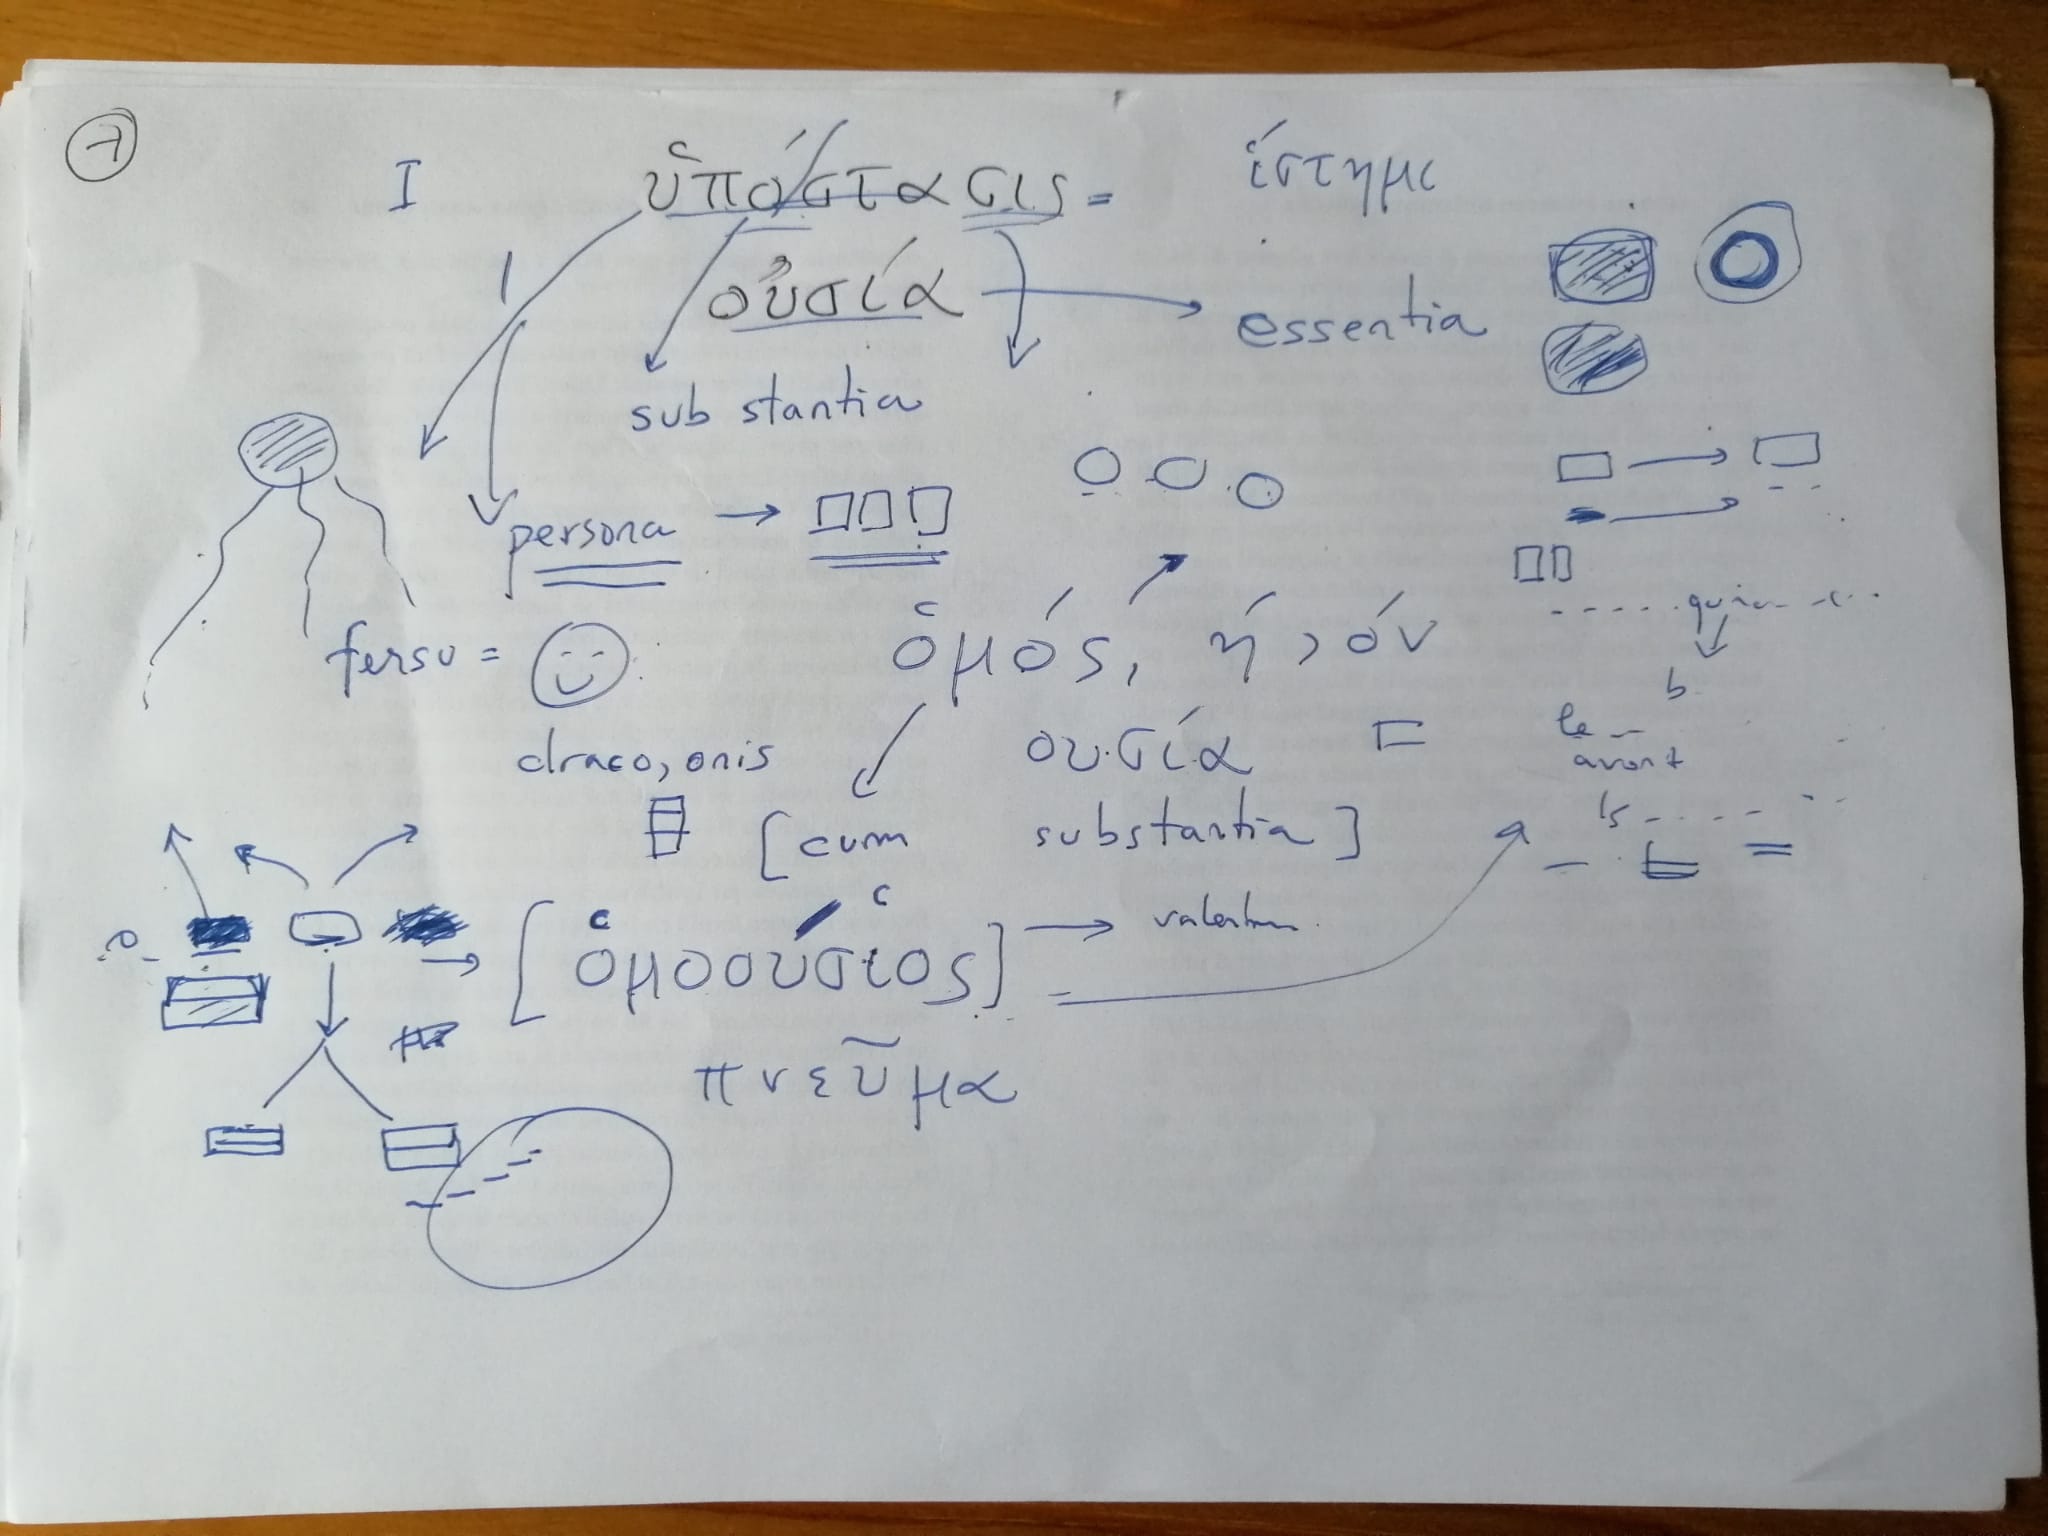 7
I ὑπόστασις = ἵστημι
οὐσία essentia
substantia
persona
fersu =
ὁμός, ή, όν
draco, onis
ουσία
[cum substantia]
b
[ὁμοούσιος]
πνεῦμα